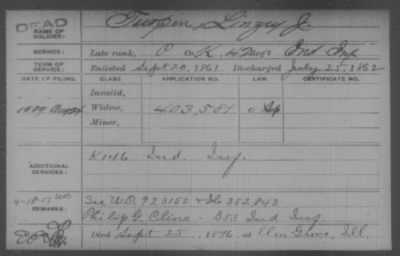 DEAD
NAME OF SOLDIER: Turpin, Lingey J.
SERVICE: Late rank, Co. K, 42 Regt Ind. Inf.
TERM OF SERVICE: Enlisted Sept 20, 1861 Discharged July 25, 1862
DATE OF FILING. CLASS. APPLICATION NO. LAW. CERTIFICATE NO.
Invalid,
1889 Aug 24 Widow, 403,581
Minor,
ADDITIONAL SERVICES: Ind. Inf.
4-18-17
REMARKS: See W.O. 923152 + 352,843
Philip G. Cline - B 53 Ind Inf
Died Sept 25, 1876, at Elm Grove, Ill.